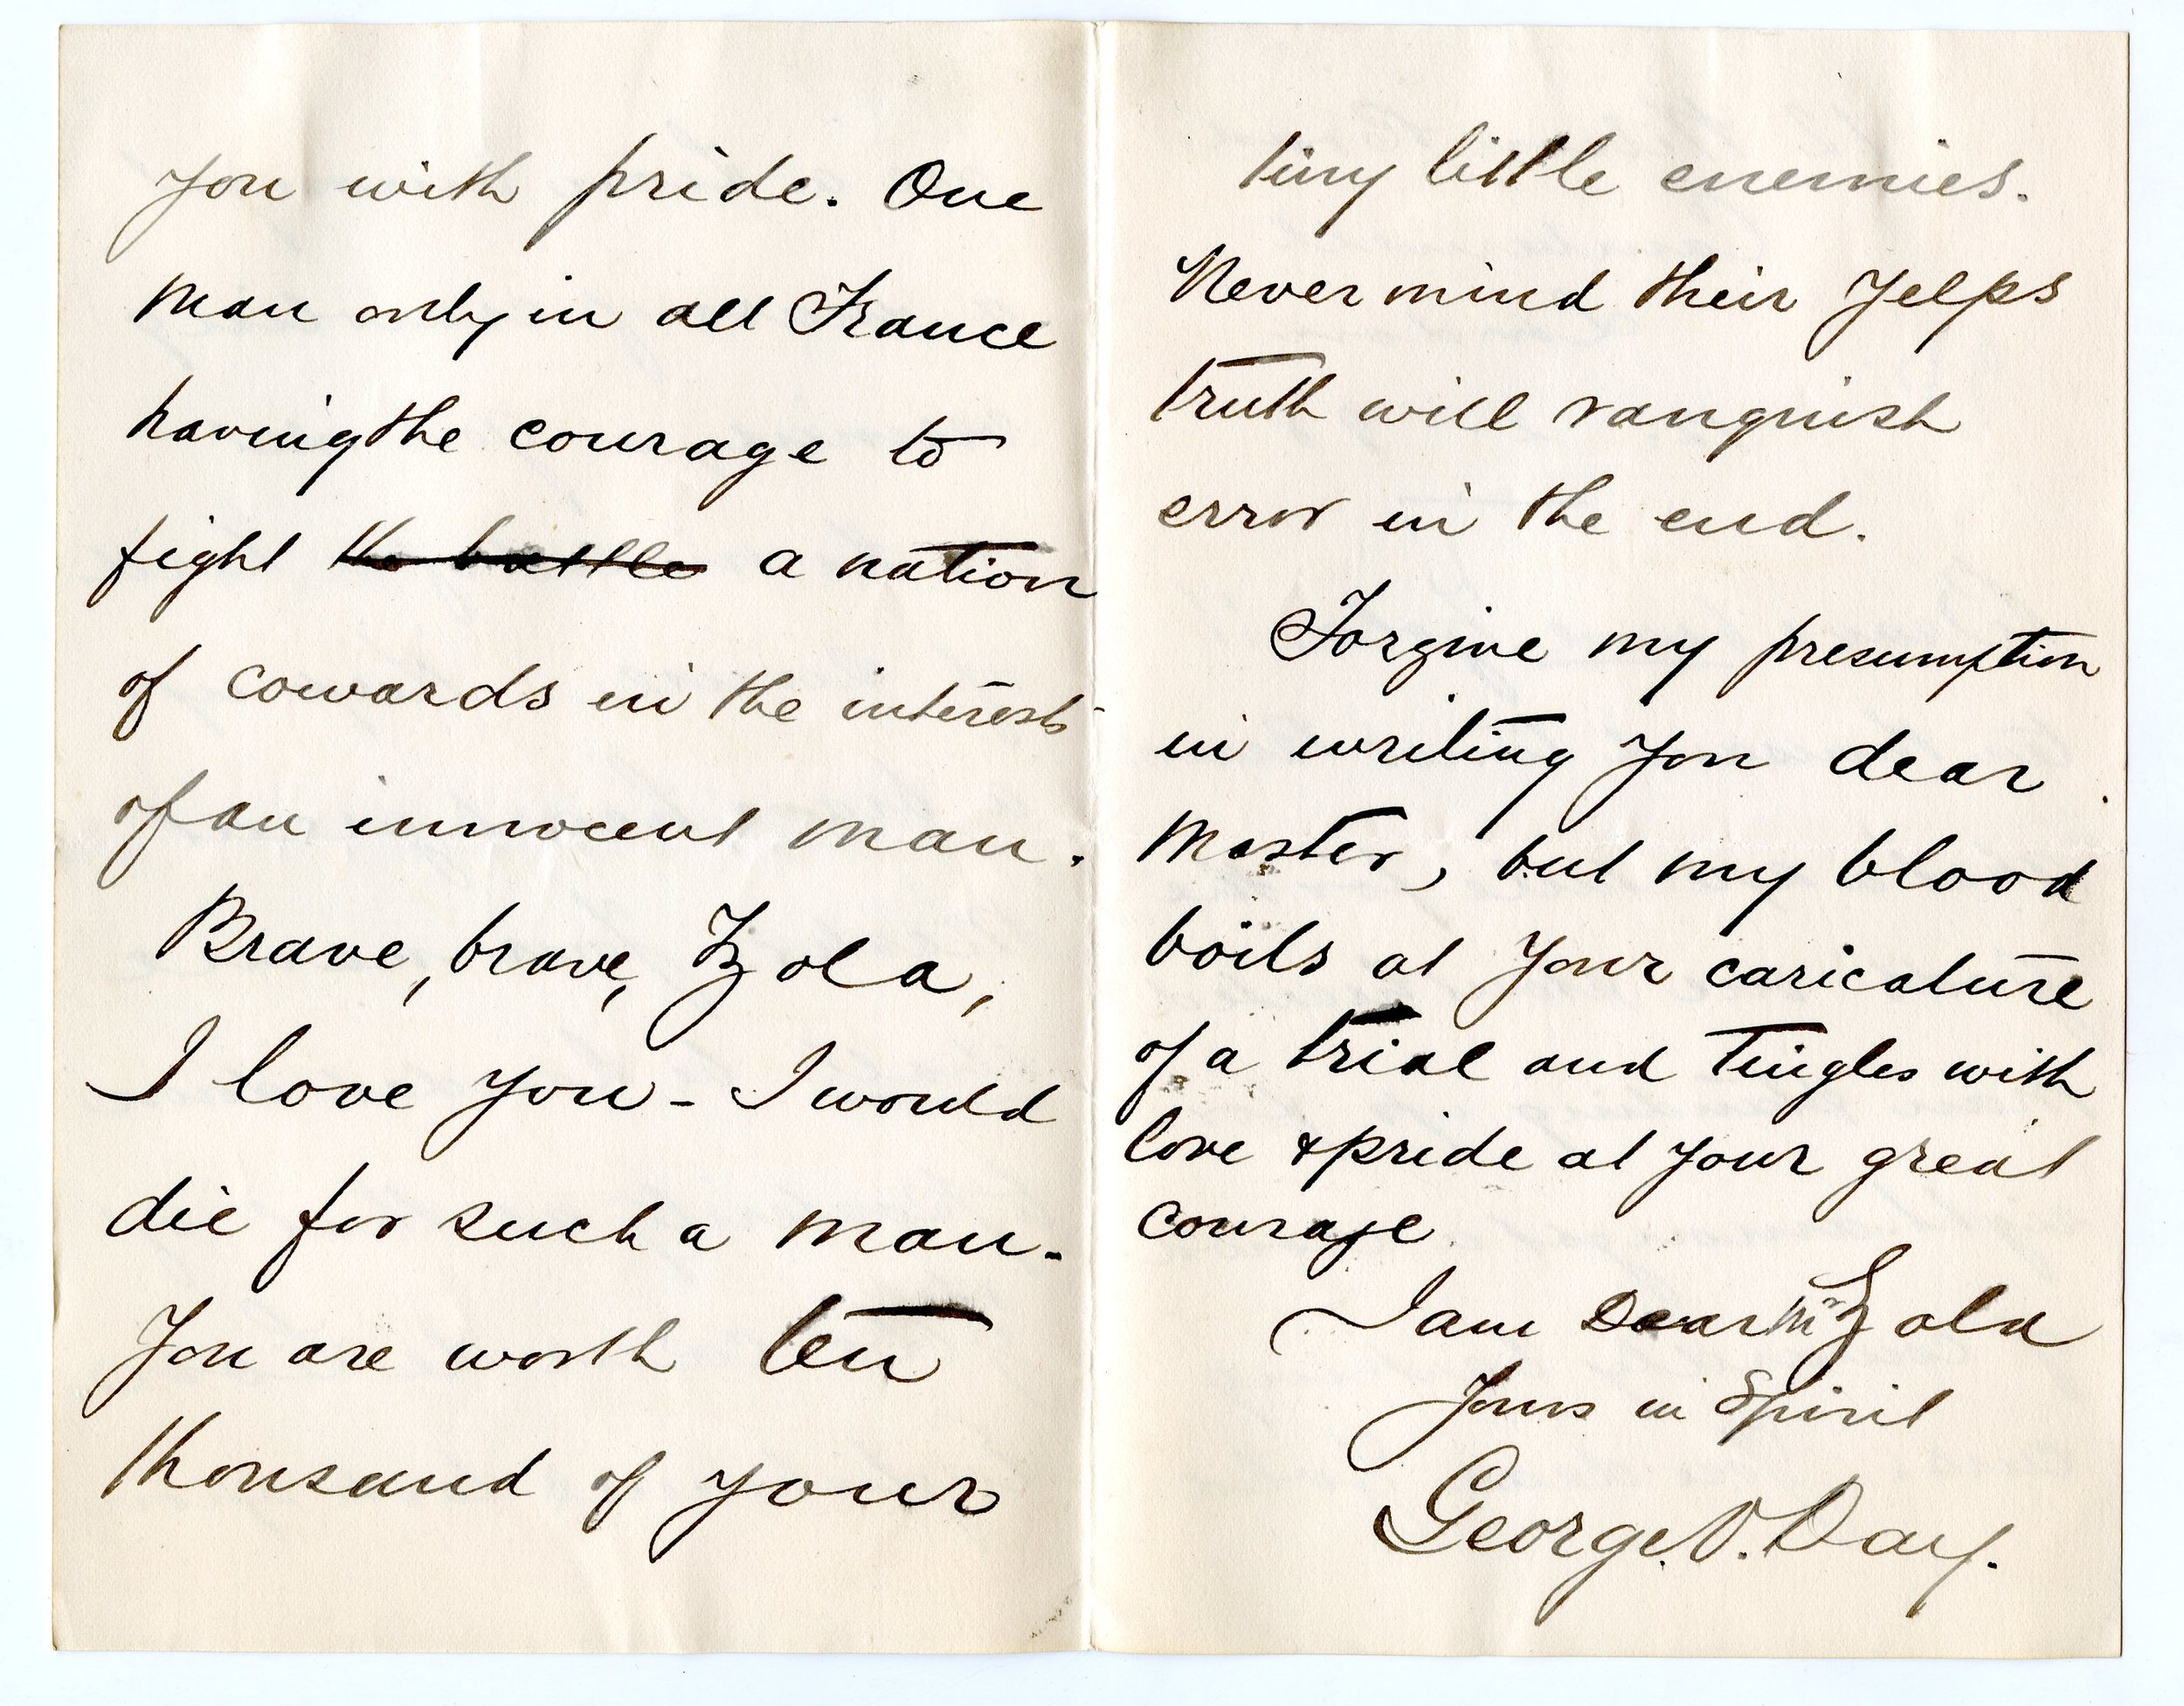 you with pride. One
man only in all France
having the courage to
fight the battle a nation
of cowards in the interests
of an innocent man.
Brave, brave, Zola,
I love you - I would
die for such a man.
You are worth ten
thousand of your
tiny little enemies.
Never mind their yelps
truth will vanquish
error in the end.
Forgive my presumption
in writing you dear
Master, but my blood
boils at your caricature
of a trial and tingles with
love & pride at your great
courage
I am Dear Mr Zola
Yours in Spirit
George. V. Day.